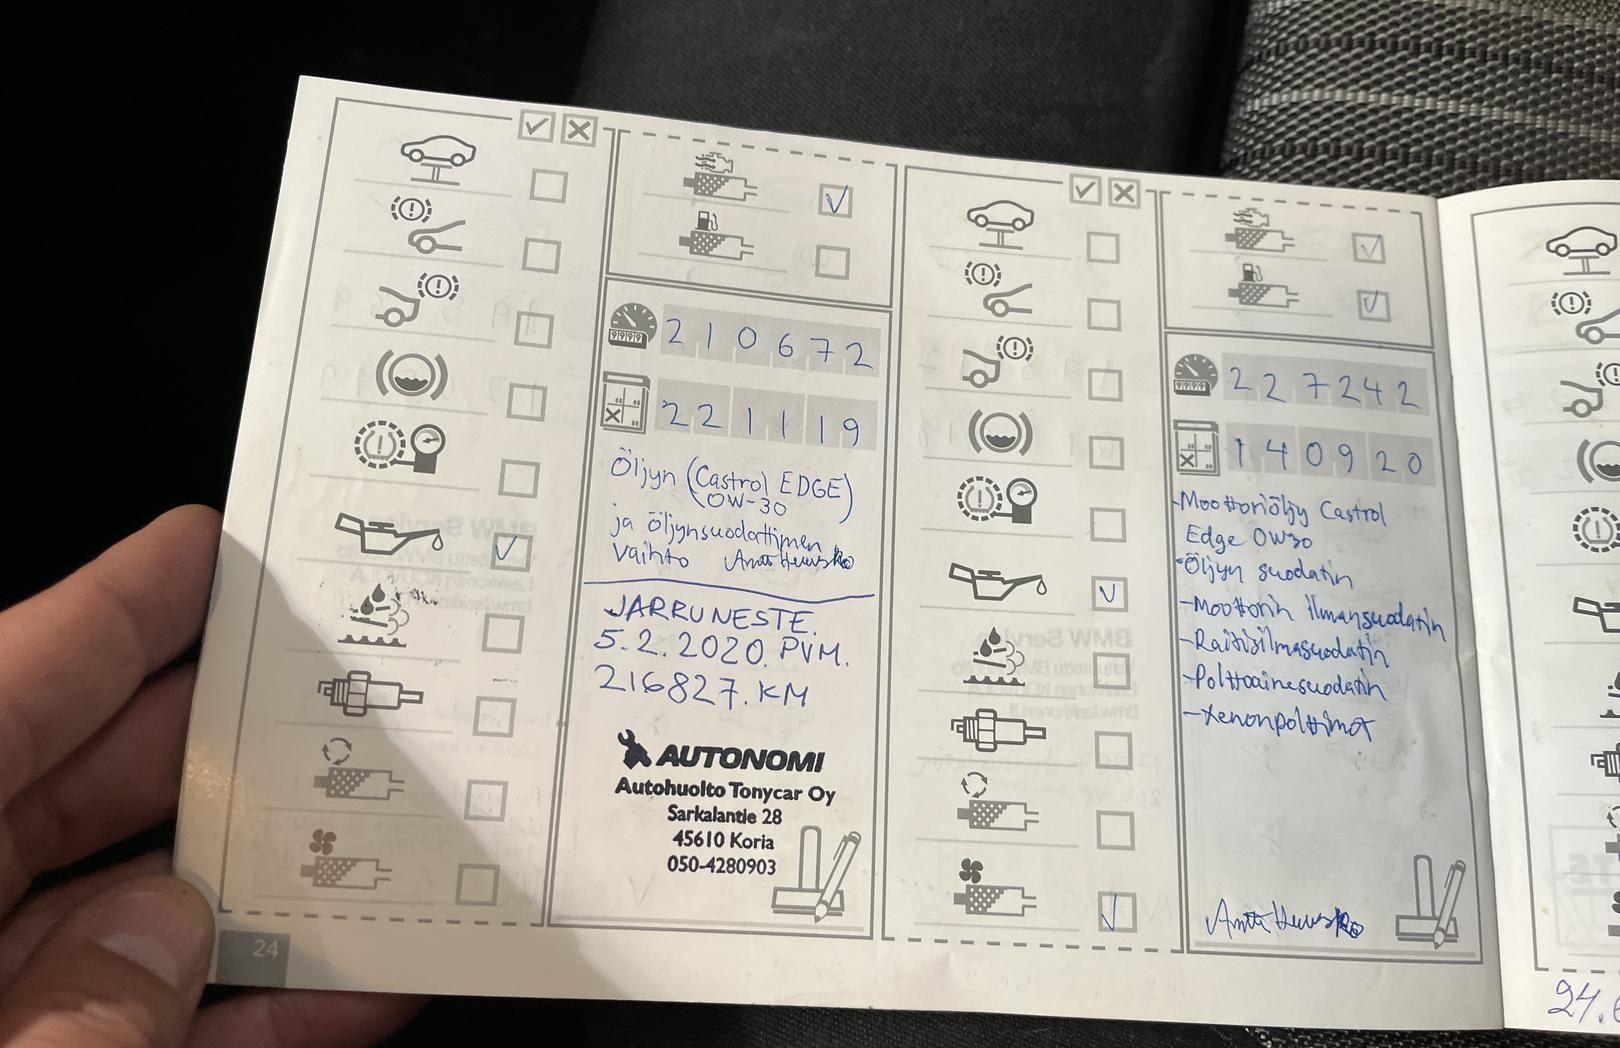 210672
221119
Öljyn (Castrol EDGE)
0W-30
ja öljynsuodattimen
vaihto
JARRUNESTE.
5.2.2020. PVM.
216827. KM
AUTONOMI
Autohuolto Tonycar Oy
Sarkalantie 28
45610 Koria
050-4280903
24
227242
140920
-Moottoriöljy Castrol
Edge 0W30
-Öljyn suodatin
-Moottorin ilmansuodatin
-Raitisilmasuodatin
-Polttoainesuodatin
-Xenonpolttimot